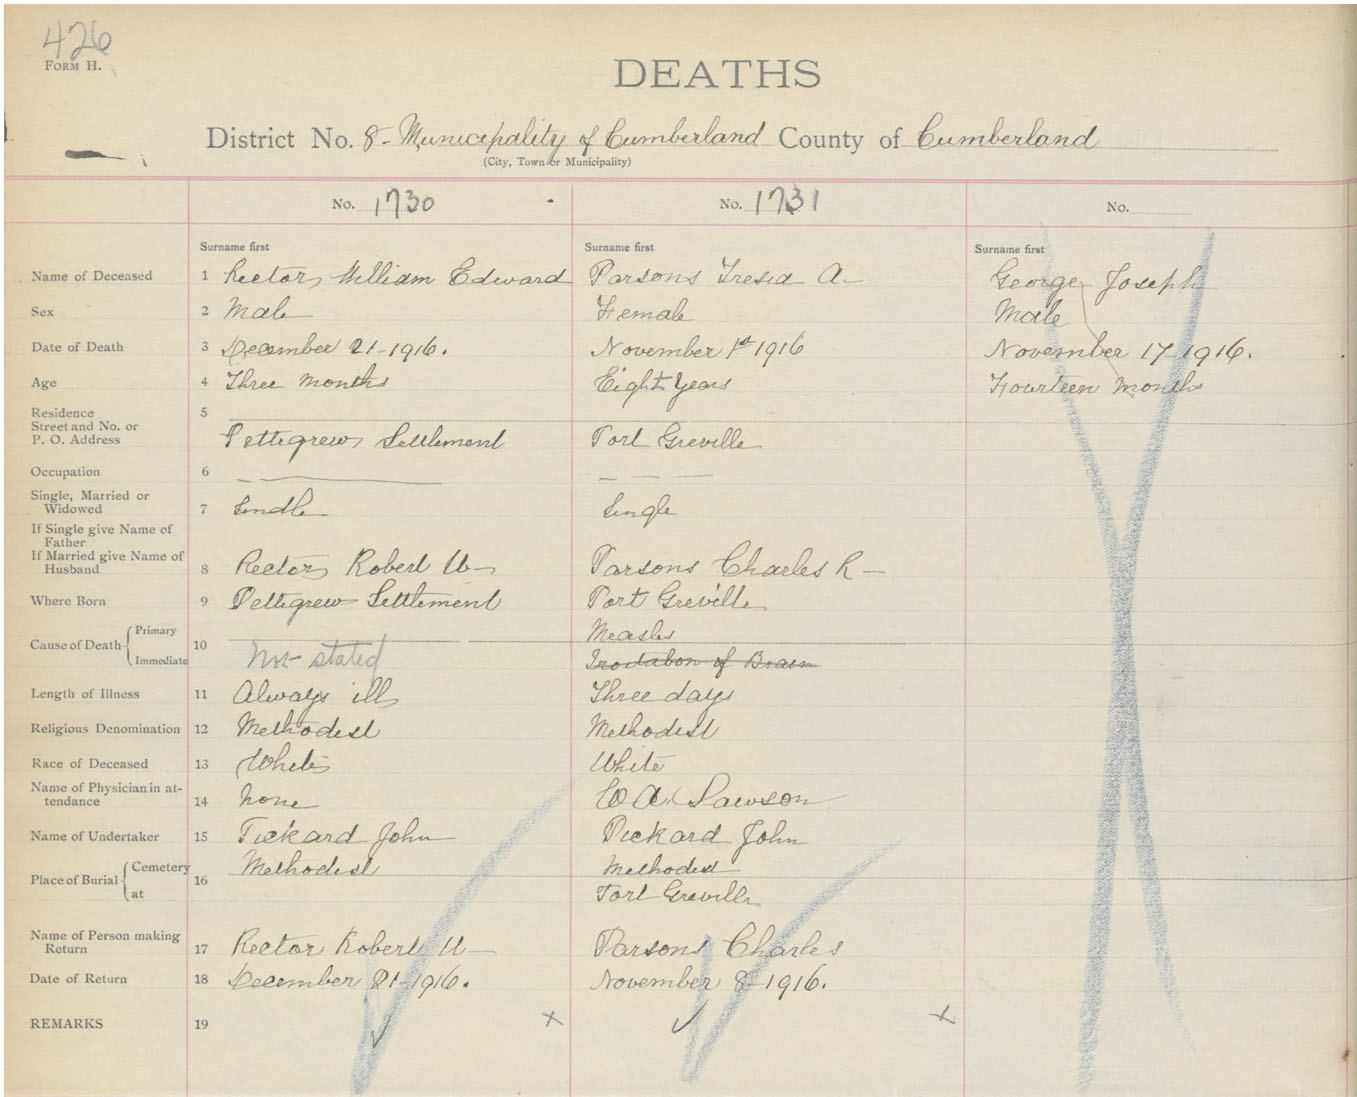 426
FORM H.
DEATHS
District No. 8 - Municipality of Cumberland County of Cumberland
(City, Town or Municipality)
No. 1730 No. 1731 No.
Surname first Surname first Surname first
Name of Deceased 1 Rector, William Edward Parsons Tresid A- George, Joseph
Sex 2 Male Female Male
Date of Death 3 December 21-1916. November 1st 1916 November 17-1916.
Age 4 Three months Eight years Fourteen Months
Residence 5
Street and No. or
P. O. Address Pettegrew Settlement Port Greville
Occupation 6 — — — —
Single, Married or
Widowed 7 Single Single
If Single give Name of
Father
If Married give Name of
Husband 8 Rector, Robert W- Parsons Charles R-
Where Born 9 Pettegrew Settlement Port Greville
Cause of Death Primary 10 Measles
Immediate Not stated of Brain
Length of Illness 11 Always ill Three days
Religious Denomination 12 Methodist Methodist
Race of Deceased 13 White White
Name of Physician in at-
tendance 14 None A. Lawson
Name of Undertaker 15 Pickard John Pickard John
Place of Burial Cemetery 16 Methodist Methodist
at Port Greville
Name of Person making
Return 17 Rector Robert W- Parsons Charles
Date of Return 18 December 21-1916. November 8-1916.
REMARKS 19 ✓ x ✓ x